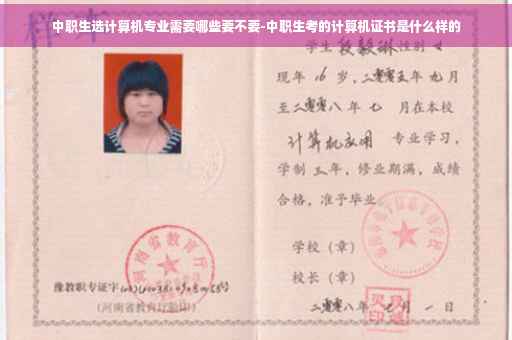 中职生选计算机专业需要哪些要不要-中职生考的计算机证书是什么样的
学生段毅琳性别 女
现年 16 岁，二零零五年 九月
至二零零八年 七 月在本校
计算机应用 专业学习，
学制 三 年，修业期满，成绩
合格，准予毕业。
学校（章）
校长（章）
二零零八年 月 一 日
河南省教育厅
豫教职专证字
（河南省教育厅验印）